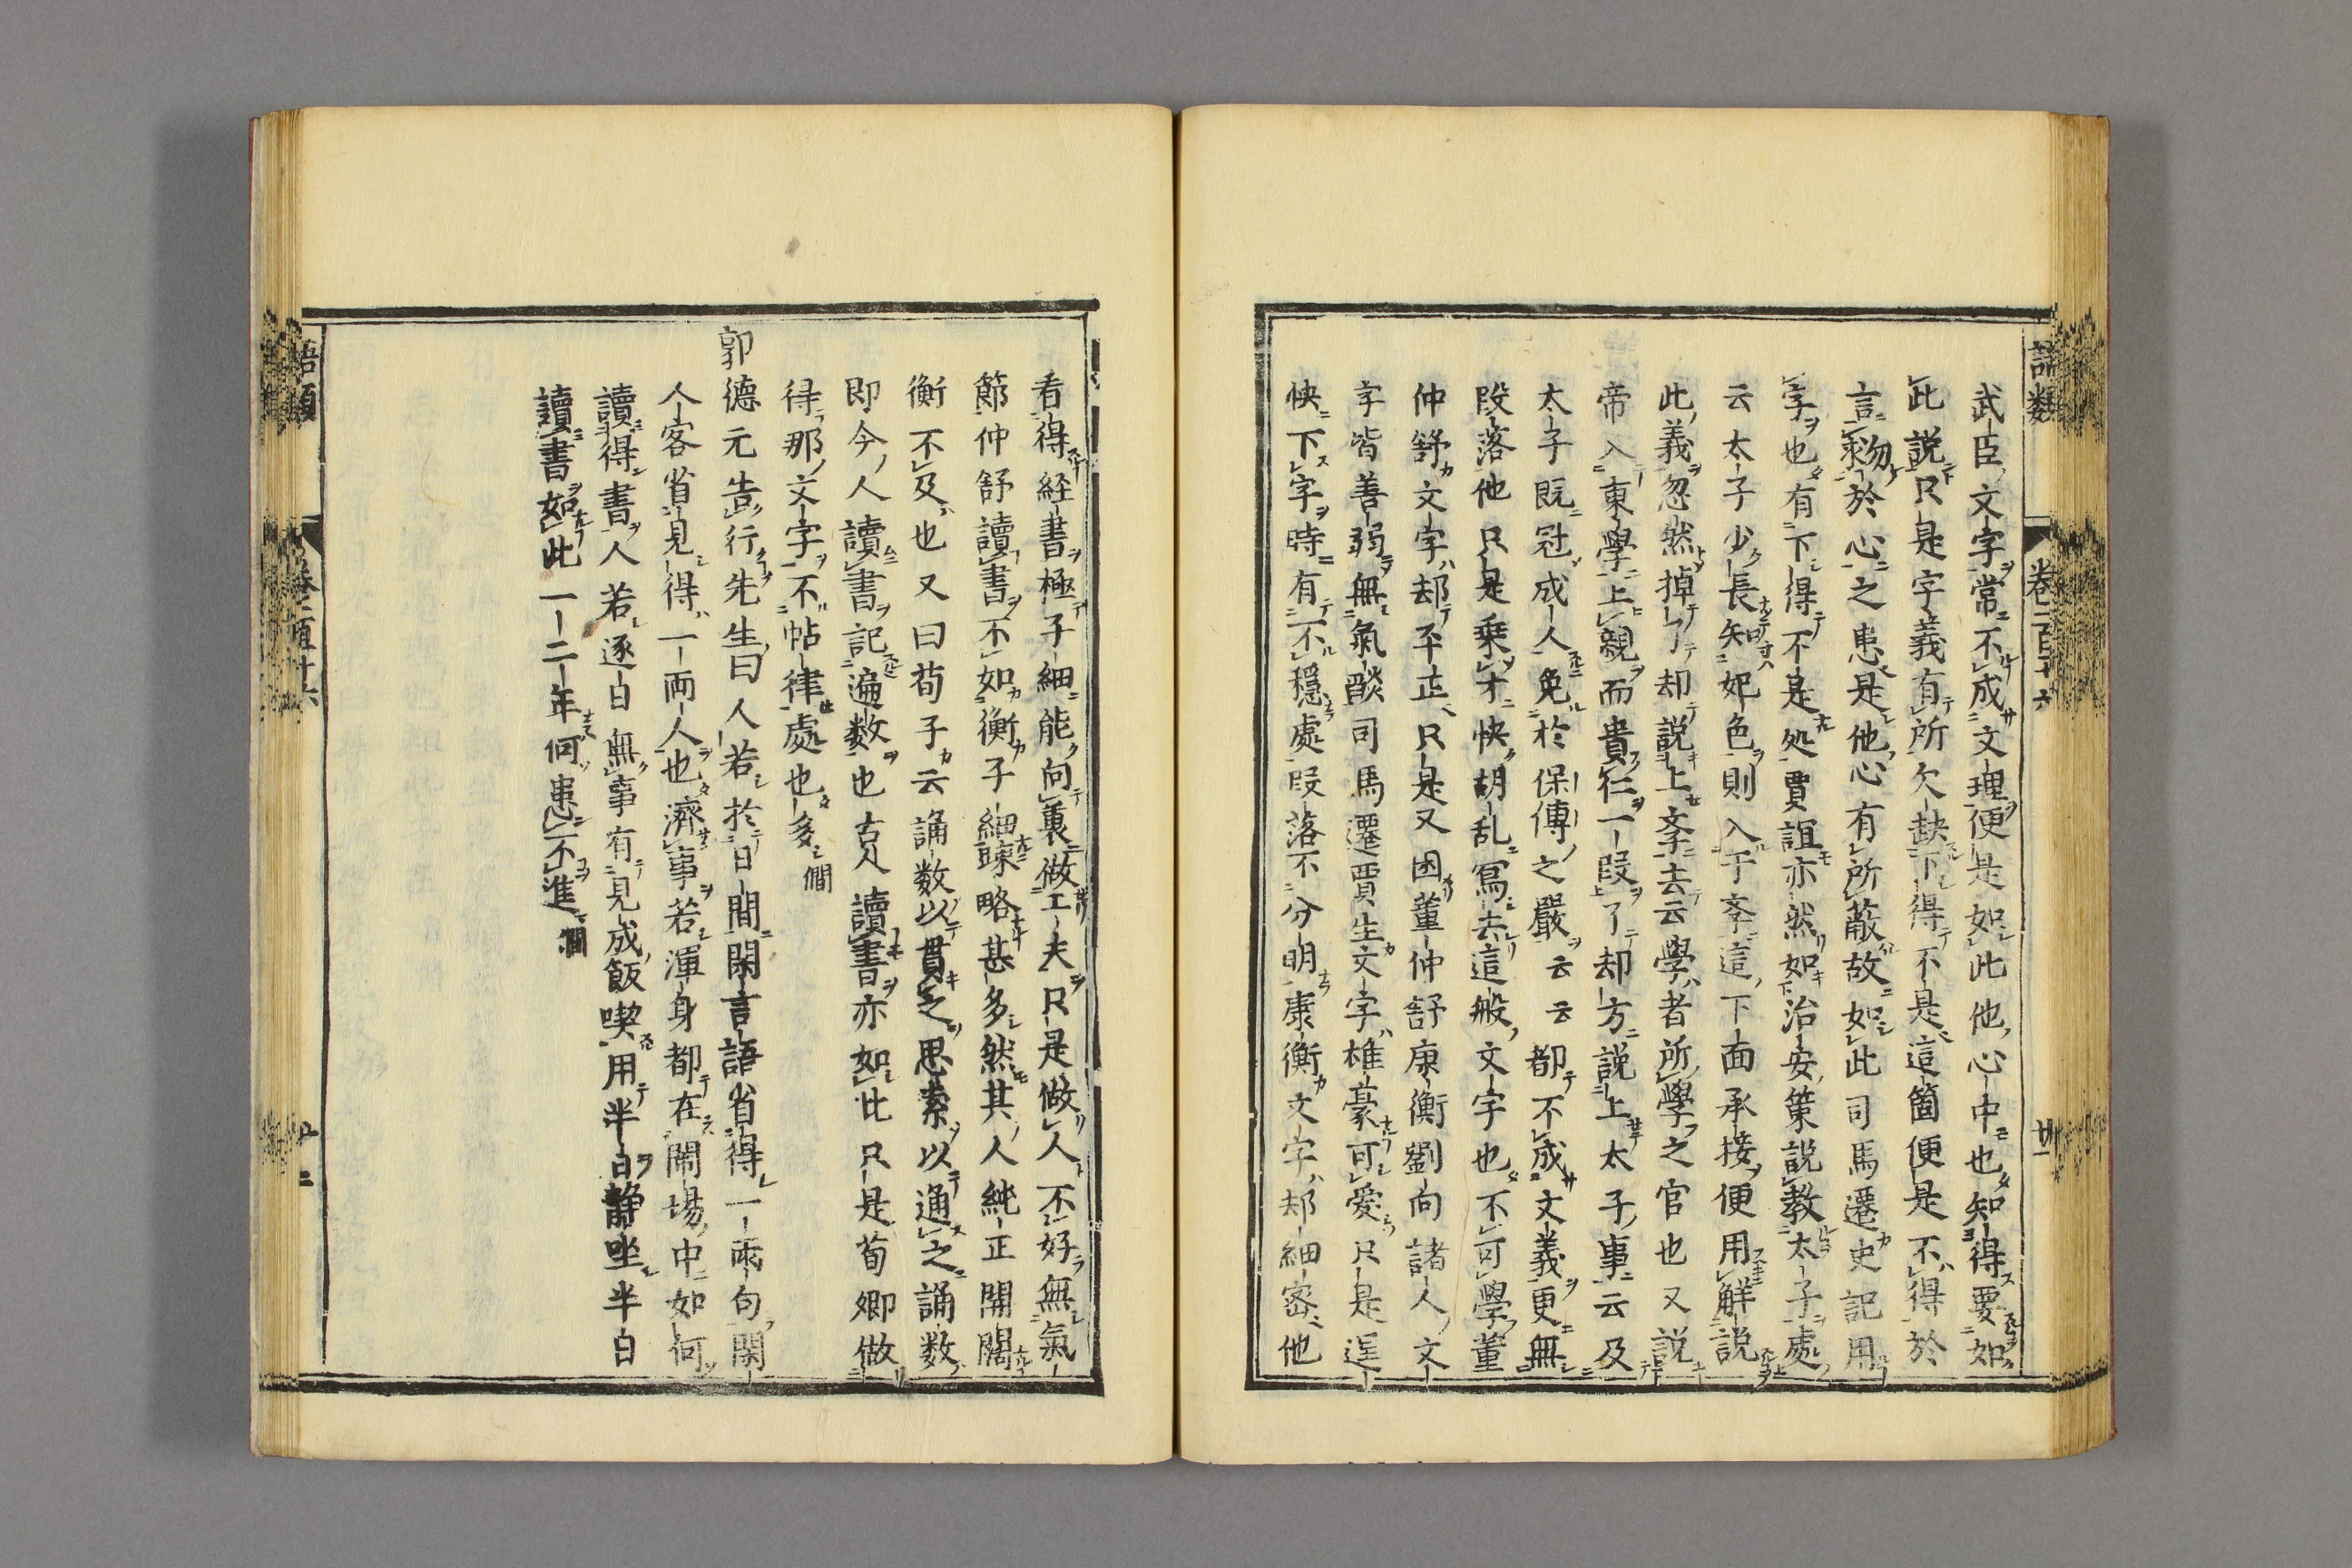 語類 卷一百十六 廿一
武臣文字常不成文理便是如此他心中也知得要如
此說只是字義有所欠缺下得不是這箇便是不得於
言勿求於心之患是他心有所蔽故如此司馬遷史記用
字也有下得不是処賈誼亦然如治安策說教太子處
云太子少長知妃色則入于斈這下面承接便用解説
此義忽然掉了却説上斈去云學者所學之官也又説
帝入東學上親而貴仁一段了却方説上太子事云及
太子既冠成人免於保傅之嚴云云都不成文義更無
段落他只是乘才快胡乱冩去這般文字也不可學董
仲舒文字却平正只是又困董仲舒康衡劉向諸人文
字皆善弱無氣燄司馬遷賈生文字雄豪可愛只是逞
快下字時有不穩處段落不分明康衡文字却細密他
看得経書極子細能向裏做工夫只是做人不好無氣
節仲舒讀書不如衡子細疎略甚多然其人純正開闊
衡不及也又曰荀子云誦数以貫之思索以通之誦数
即今人讀書記遍数也古人讀書亦如此只是荀卿做
得那文字不帖律處也多 僩
郭德元告行先生曰人若於日間閑言語省得一兩句閑
人客省見得一両人也濟事若渾身都在鬧場中如何
讀得書人若逐日無事有見成飯喫用半日静坐半日
讀書如此一二年何患不進 僩
語類 卷一百十六